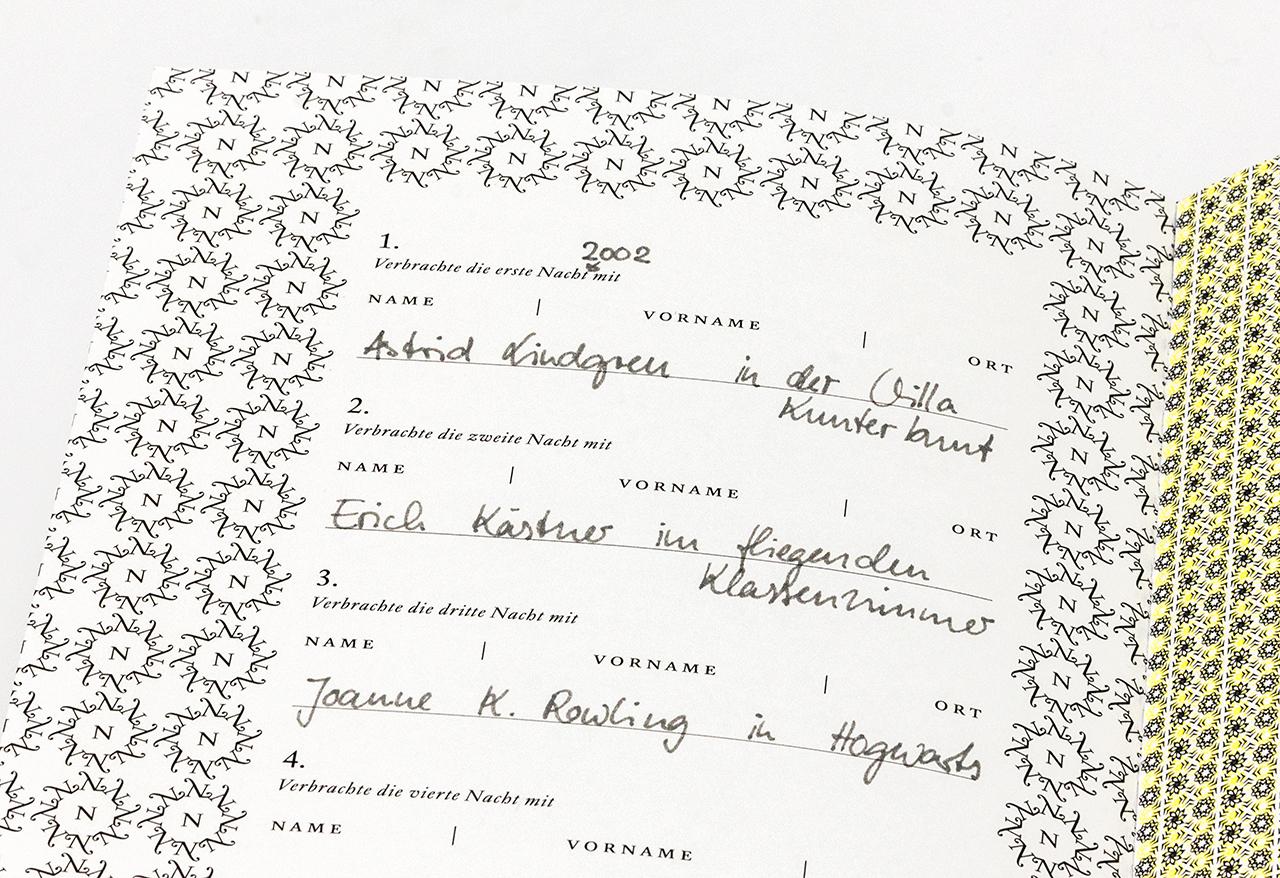 1.
2002
Verbrachte die erste Nacht mit
NAME | VORNAME | ORT
Astrid Lindgren in der Villa
Kunterbunt
2.
Verbrachte die zweite Nacht mit
NAME | VORNAME | ORT
Erich Kästner im fliegenden
Klassenzimmer
3.
Verbrachte die dritte Nacht mit
NAME | VORNAME | ORT
Joanne K. Rowling in Hogwarts
4.
Verbrachte die vierte Nacht mit
NAME | VORNAME |